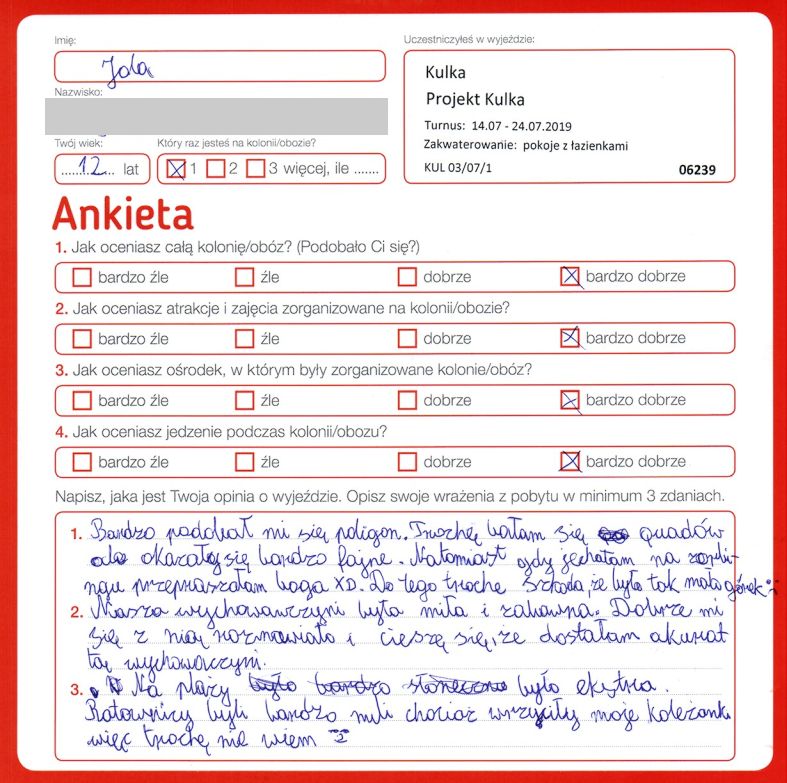 Imię:
Uczestniczyłeś w wyjeździe:
Jola
Kulka
Projekt Kulka
Nazwisko:
Turnus: 14.07 - 24.07.2019
Zakwaterowanie: pokoje z łazienkami
KUL 03/07/1
06239
Twój wiek:
Który raz jesteś na kolonii/obozie?
12 lat
1 2 3 więcej, ile .......
Ankieta
1. Jak oceniasz całą kolonię/obóz? (Podobało Ci się?)
bardzo źle źle dobrze bardzo dobrze
2. Jak oceniasz atrakcje i zajęcia zorganizowane na kolonii/obozie?
bardzo źle źle dobrze bardzo dobrze
3. Jak oceniasz ośrodek, w którym były zorganizowane kolonie/obóz?
bardzo źle źle dobrze bardzo dobrze
4. Jak oceniasz jedzenie podczas kolonii/obozu?
bardzo źle źle dobrze bardzo dobrze
Napisz, jaka jest Twoja opinia o wyjeździe. Opisz swoje wrażenia z pobytu w minimum 3 zdaniach.
1. Bardzo podobał mi się poligon. Trochę bałam się quadów
ale okazały się bardzo fajne. Natomiast gdy jechałam na zorbi-
ngu przepraszałam boga XD. Do tego trochę szkoda, że było tak mało górek :c
2. Nasza wychowawczyni była miła i zabawna. Dobrze mi
się z nią rozmawiało i cieszę się, że dostałam akurat
tą wychowaczyni.
3. Na plaży było bardzo słonecznie było ekstra.
Ratownicy byli bardzo mili chociaż wrzuciły moje koleżanki
więc trochę nie wiem